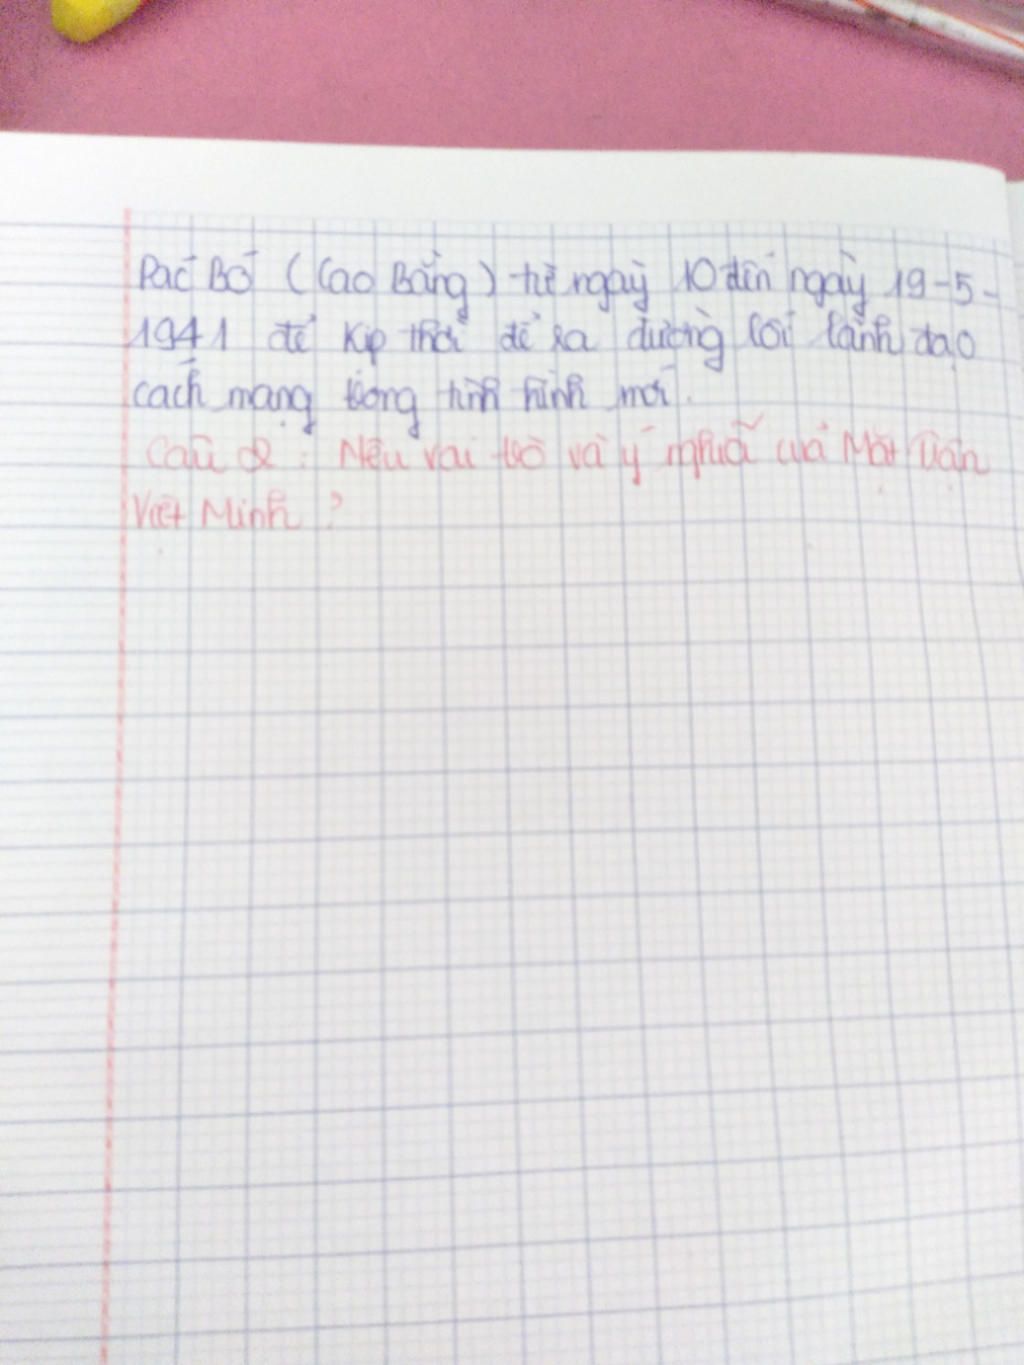 Pác Bó (Cao Bằng) từ ngày 10 đến ngày 19-5-
1941 để kịp thời đề ra đường lối lãnh đạo
cách mạng trong tình hình mới.
Câu 2: Nêu vai trò và ý nghĩa của Mặt trận
Việt Minh?